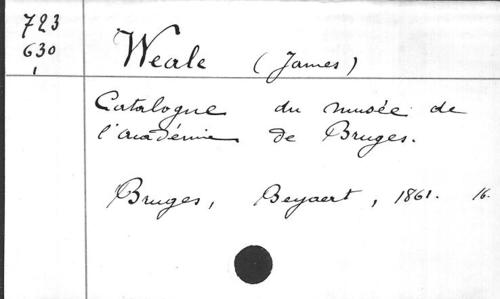 723
630
Weale (James)
Catalogue du musée de
l'académie de Bruges.
Bruges, Beyaert, 1861. 16.